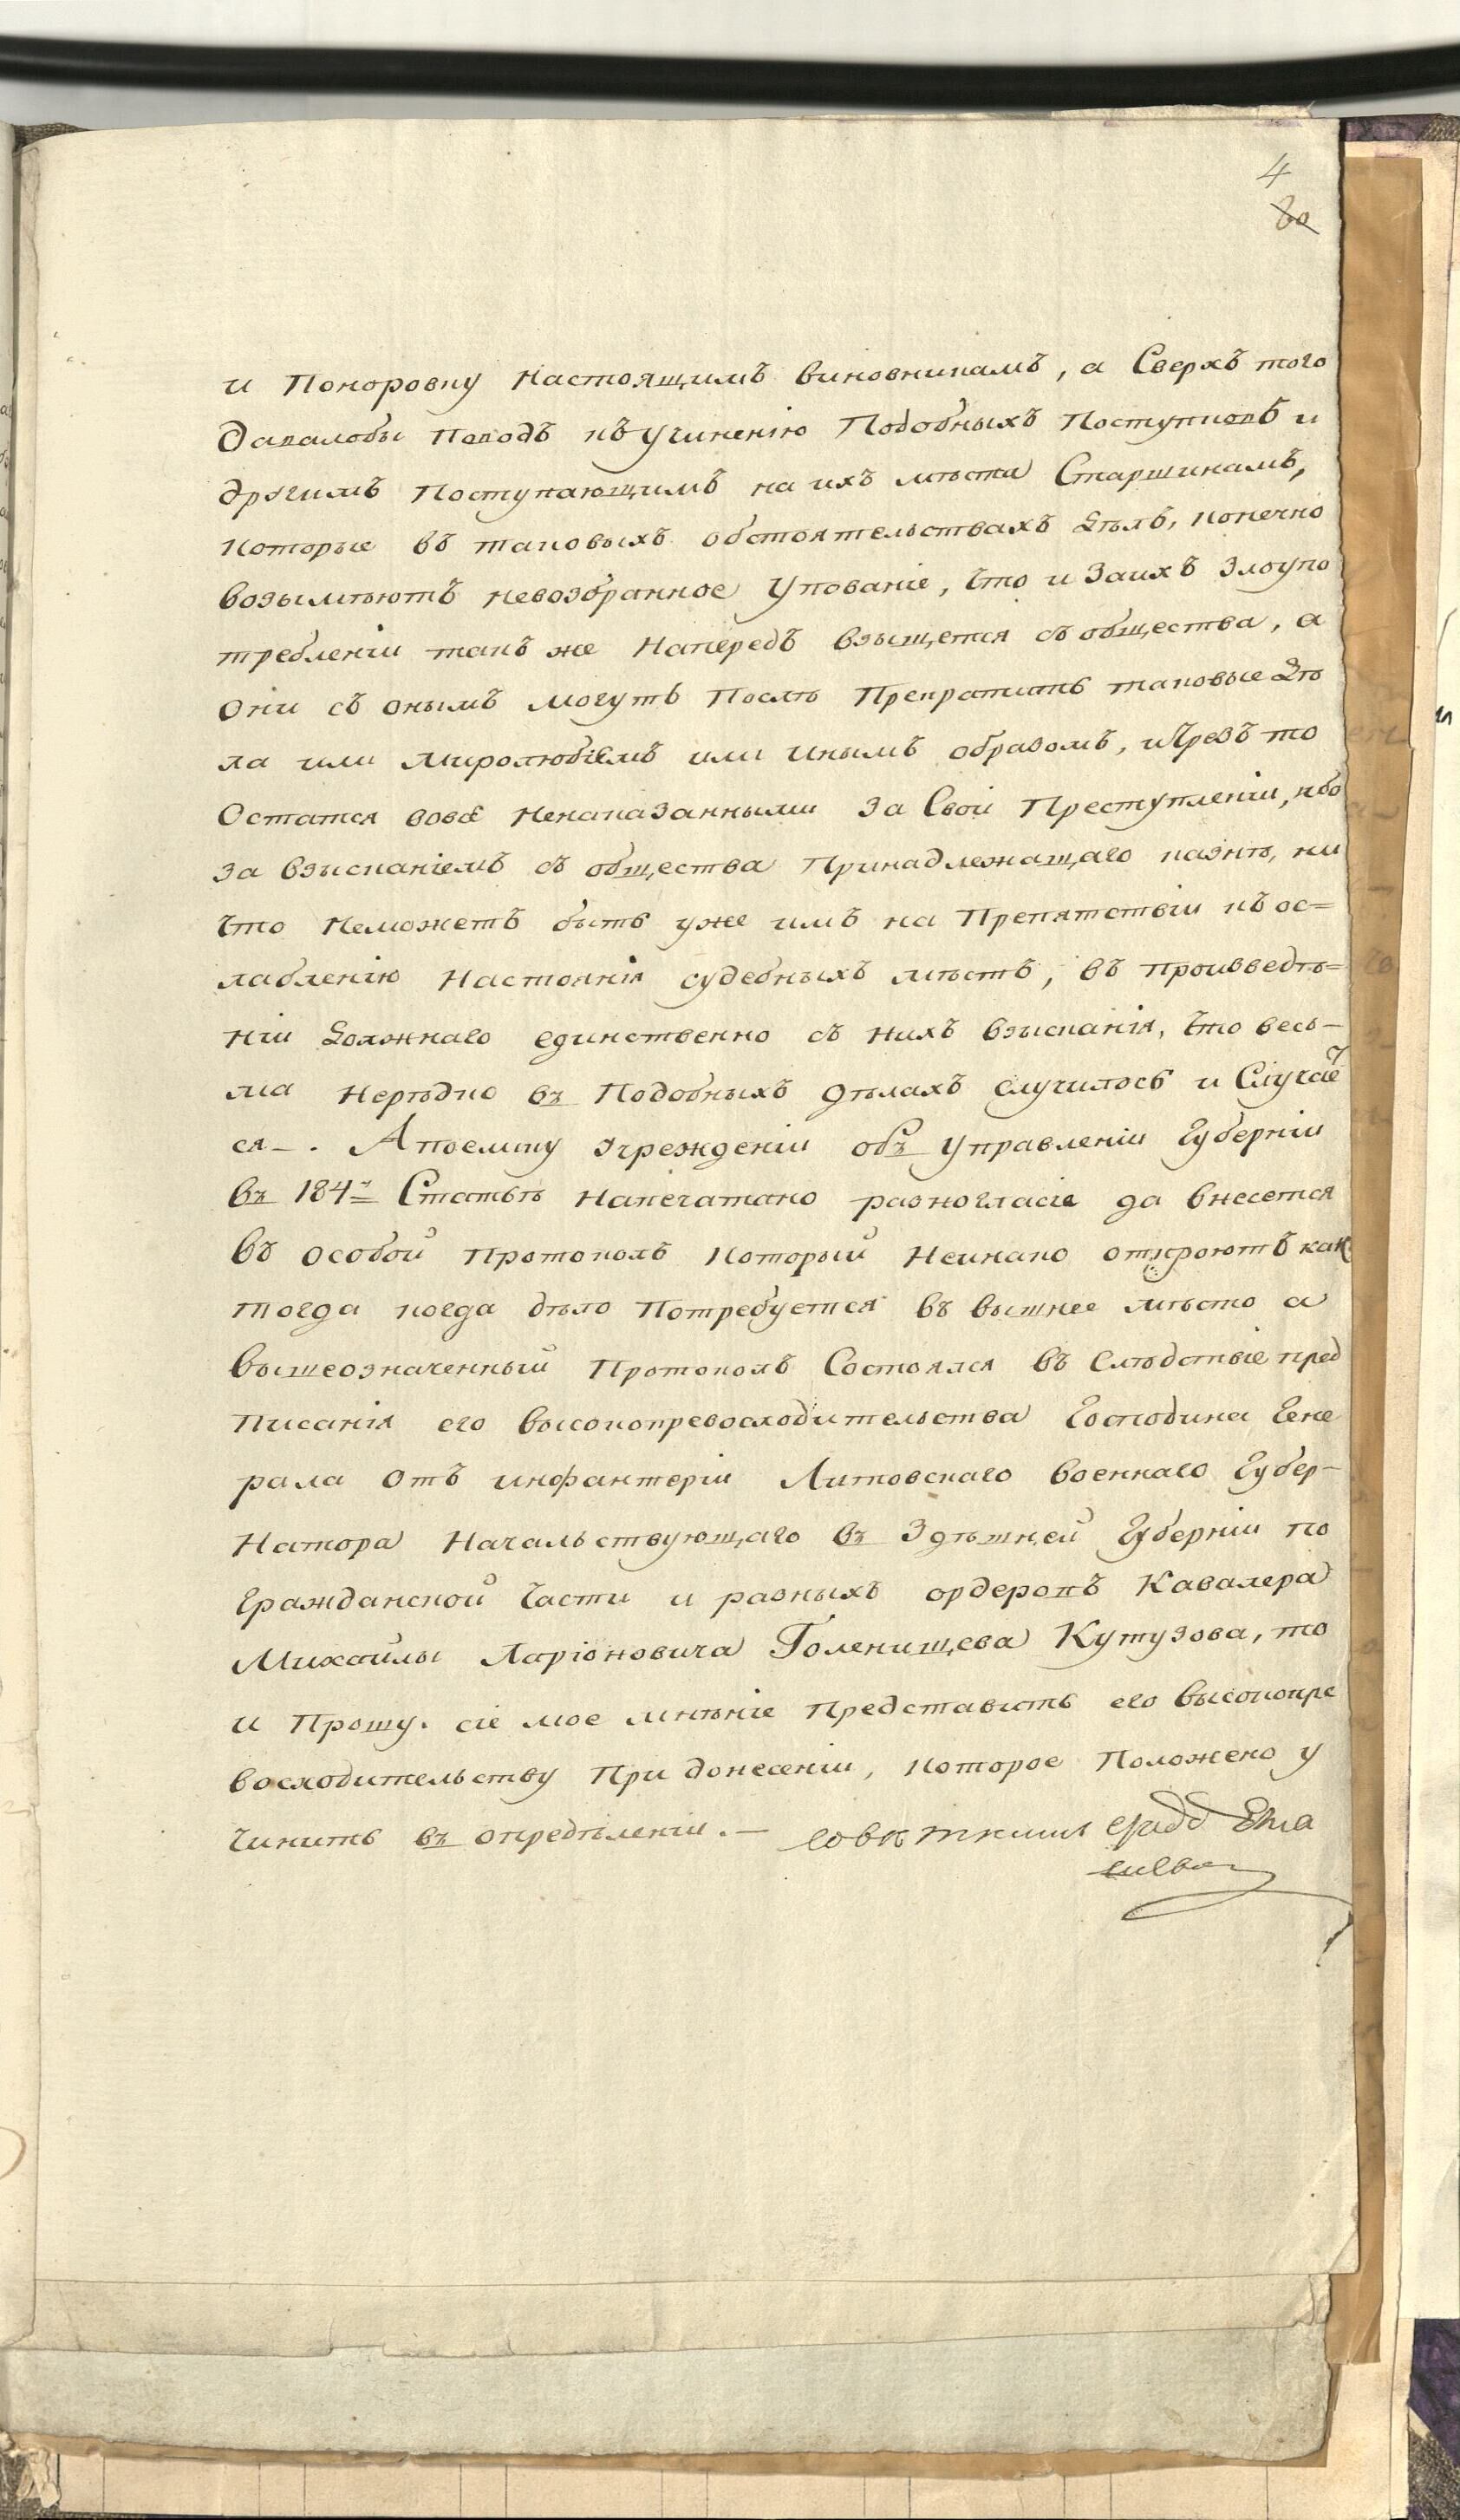 4
80
и Поноровку настоящимъ виновникамъ, а Сверхъ того
давалобы поводъ къ Учиненію Подобныхъ Поступковъ и
другимъ поступающимъ на ихъ мѣста Старшинамъ,
которые въ таковыхъ обстоятельствахъ дѣлъ, конечно
возымѣютъ невозбранное Упованіе, что и заихъ злоупо
требленіи такъ же напередъ взыщется съ общества, а
они съ онымъ могутъ послѣ Прекратить таковые дѣ
ла или миролюбіемъ или инымъ образомъ, и чрезъ то
Остатся вовсе ненаказанными за Свои Преступленіи, ибо
за взысканіемъ съ общества Принадлежащаго казнѣ, ни
что неможетъ быть уже имъ на Препятствіи къ ос=
лабленію настоянія судебныхъ мѣстъ, въ произведѣ=
ніи должнаго единственно съ нихъ взысканія, что весь-
ма нерѣдко въ Подобныхъ дѣлахъ случилось и Случае
ся-. А поелику учрежденіи объ управленіи Губерніи
въ 184й Статьѣ напечатано разногласіе да внесется
въ особой протоколъ который неинако откроютъ как
тогда когда дѣло потребуется въ вышнее мѣсто а
вышеозначенный Протоколъ Состоялся въ слѣдствіе пред
писанія его высокопревосходительства Господина Гене
рала отъ инфантеріи Литовскаго военнаго Губер-
натора начальствующаго въ здѣшней Губерніи по
Гражданской части и разныхъ ордеровъ Кавалера
Михайлы Ларіоновича Голенищева Кутузова, то
и Прошу. сіе мое мнѣніе представить его высокопре
восходительству при донесеніи, которое положено у
чинить въ опредѣленіи.-